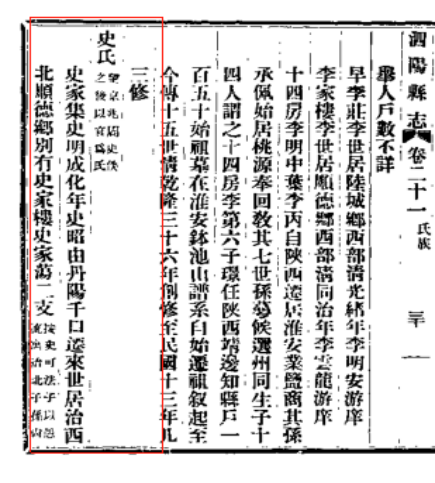 泗陽縣志 卷二十一 氏族 三十一
舉人戶數不詳
早李莊李世居陸城鄉西部清光緒年李明安游庠
李家樓李世居順德鄉西部清同治年李雲龍游庠
十四房李明中葉李丙自陝西遷居淮安業鹽商其係
承佩始居桃源奉回敎其七世孫蒭候選州同生子十
四人謂之十四房李第六子環任陝西靖邊知縣戶一
百五十始祖墓在淮安鉢池山譜系自始遷祖叙起至
今傳十五世清乾隆三十六年創修至民國十三年凡
三修
史氏 望京兆周史佚之後以官爲氏
史家集史明成化年史昭由丹陽千口遷來世居治西
北順德鄉別有史家樓史家蕩二支 按史可法子以恕